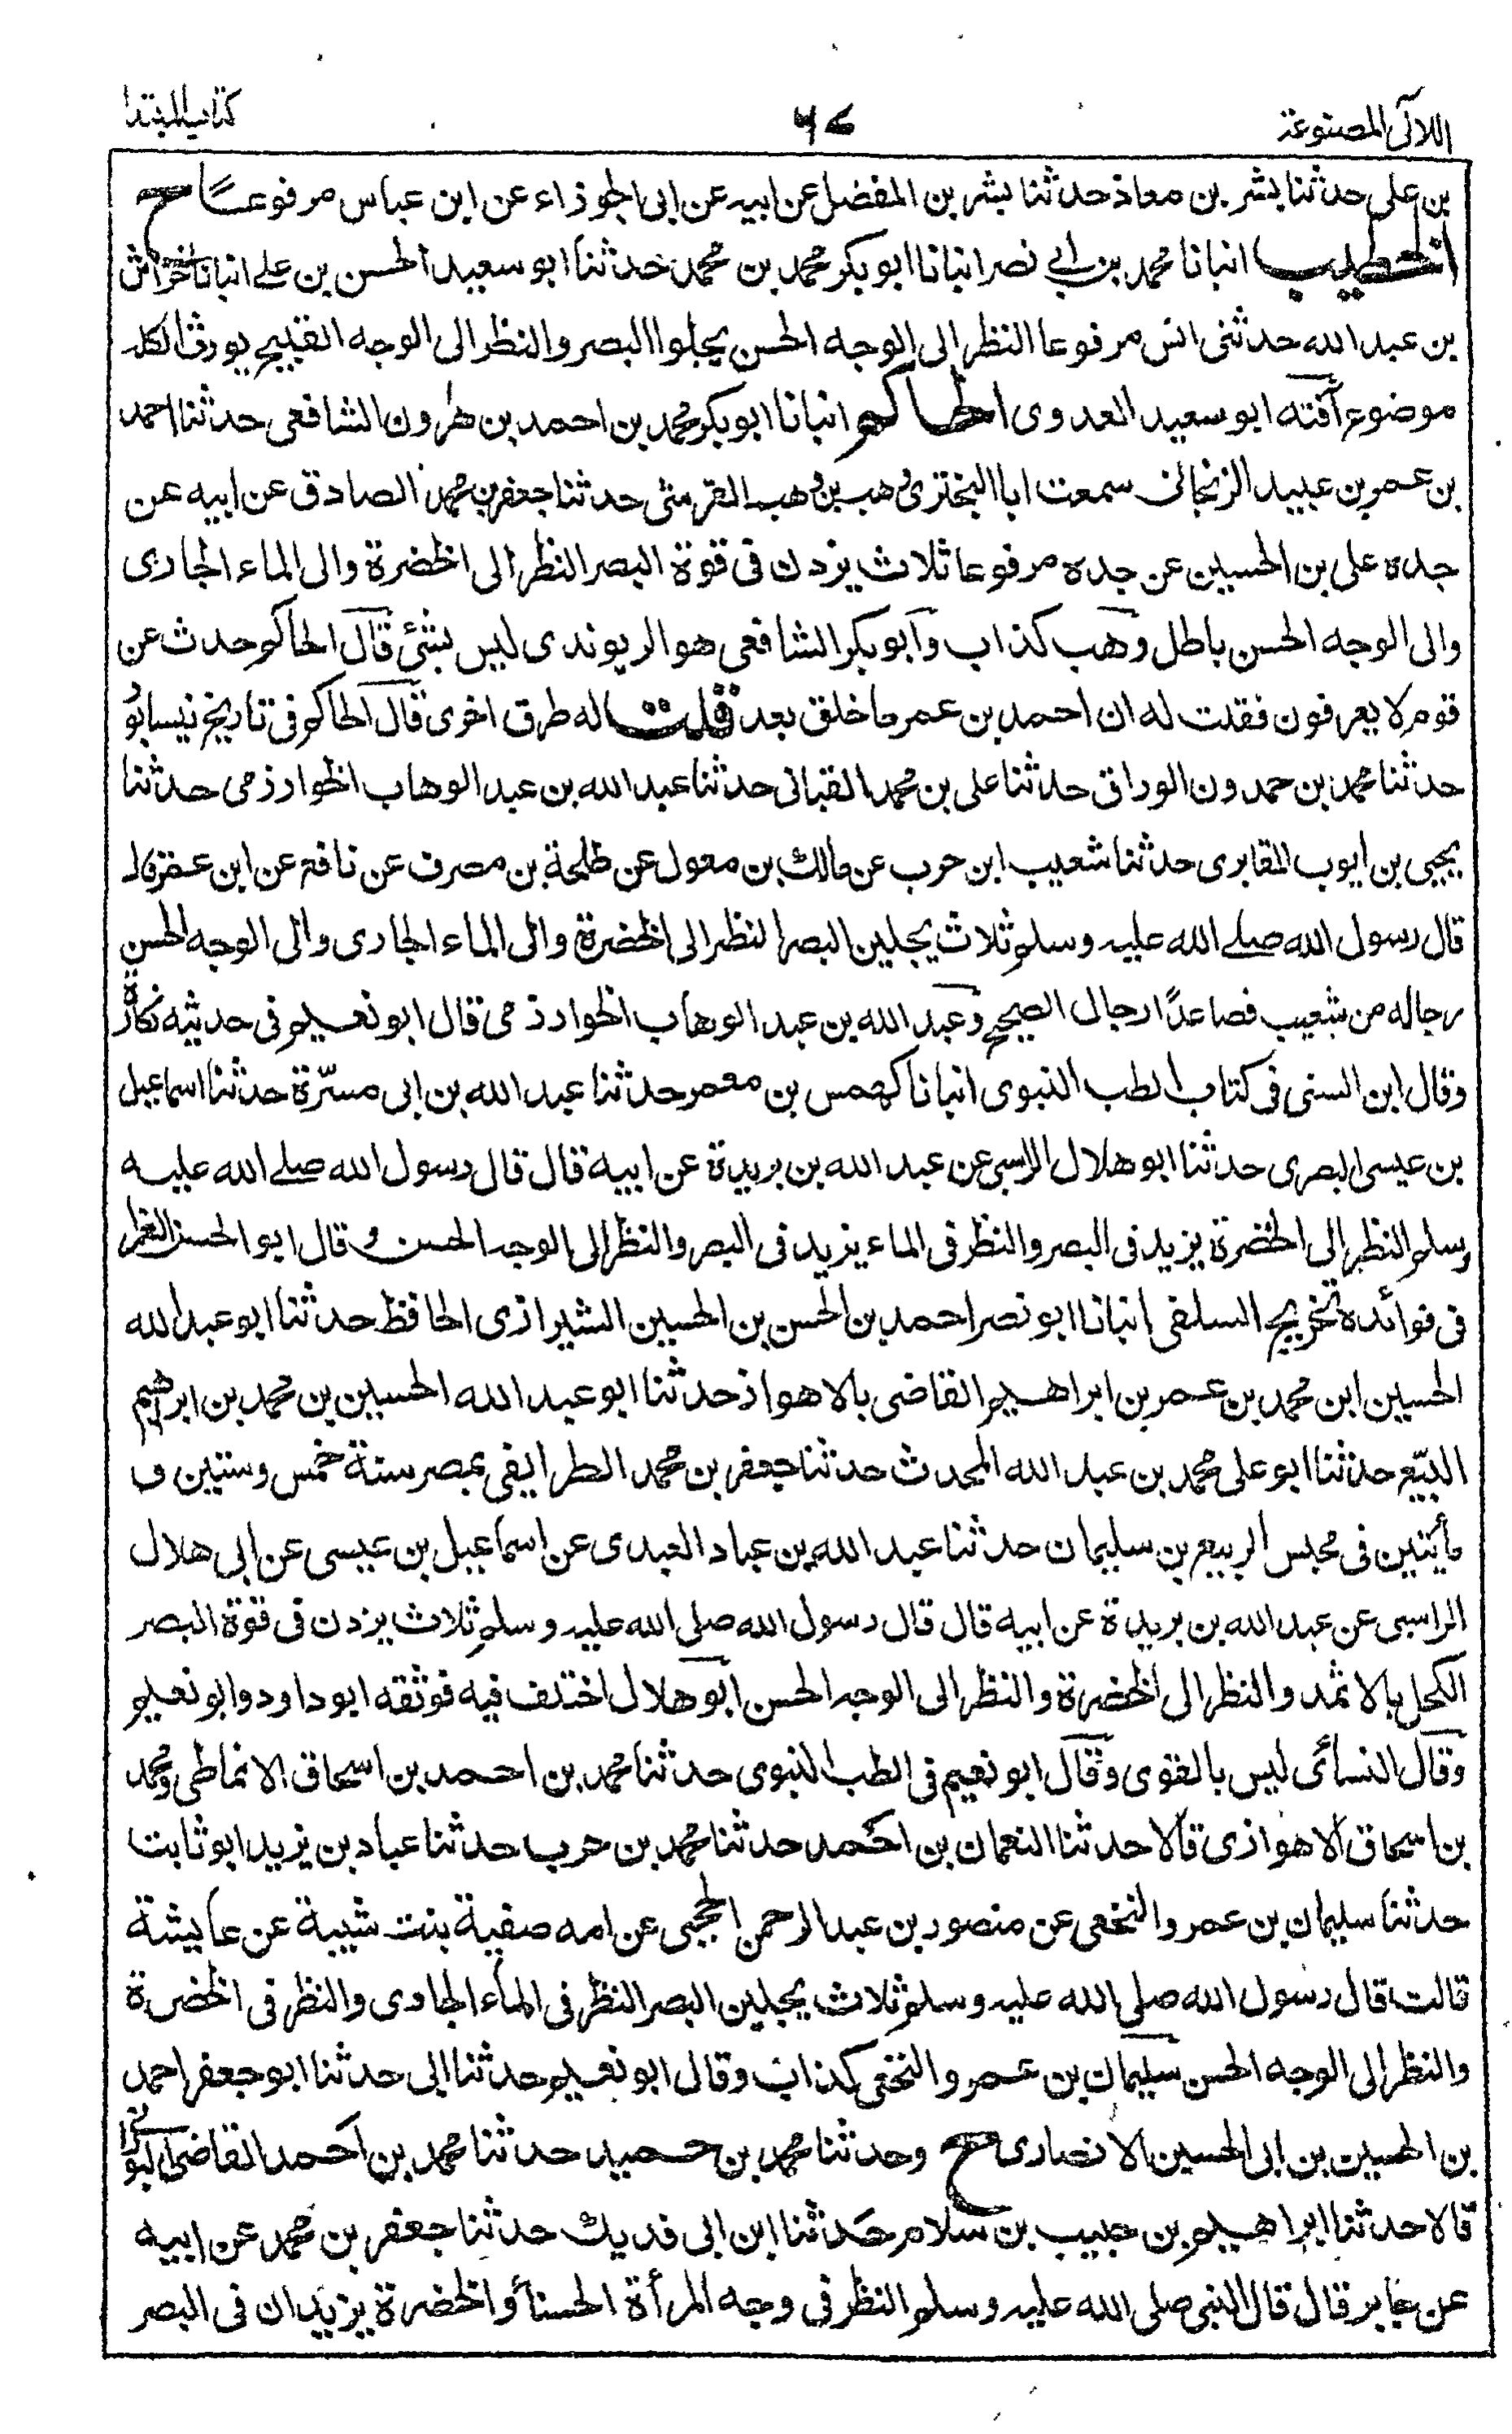 اللآلى المصنوعة
٦٤
كتاب المبتدا
بن على حدثنا بشر بن معاذ حدثنا بشر بن المفضل عن ابيه عن ابى الجوزاء عن ابن عباس مرفوعا ح
الخطيب انبانا محمد بن ابي نصر انبانا ابو بكر محمد بن محمد حدثنا ابو سعيد الحسن بن على انبانا خراش
بن عبد الله حدثنى انس مرفوعا النظر الى الوجه الحسن يجلوا البصر والنظر الى الوجه القبيح يورث الكلد
موضوع آفته ابو سعيد العدوى الحاكم انبانا ابو بكر محمد بن احمد بن هارون الشافعى حدثنا احمد
بن عمر بن عبيد الزنجانى سمعت ابا البخترى وهب بن وهب القرمشى حدثنا جعفر بن محمد الصادق عن ابيه عن
جده على بن الحسين عن جده مرفوعا ثلاث يزدن فى قوة البصر النظر الى الخضرة والى الماء الجارى
والى الوجه الحسن باطل وهب كذاب وابو بكر الشافعى هو الريوندى ليس بشئ قال الحاكم حدث عن
قوم لا يعرفون فقلت له ان احمد بن عمر ما خلق بعد قلت له طرق اخرى قال الحاكم فى تاريخ نيسابور
حدثنا محمد بن حمدون الوراق حدثنا على بن محمد القبانى حدثنا عبد الله بن عبد الوهاب الخوارزمى حدثنا
يحيى بن ايوب المقابرى حدثنا شعيب ابن حرب عن مالك بن معول عن طلحة بن مصرف عن نافع عن ابن عمر قال
قال رسول الله صلى الله عليه وسلم ثلاث يجلين البصر النظر الى الخضرة والى الماء الجارى والى الوجه الحسن
رجاله من شعيب فصاعدًا رجال الصحيح وعبد الله بن عبد الوهاب الخوارزمى قال ابو نعيم فى حديثه نكارة
وقال ابن السنى فى كتاب الطب النبوى انبانا كهمس بن معمر حدثنا عبد الله بن ابى مسرّة حدثنا اسماعيل
بن عيسى البصرى حدثنا ابو هلال الراسبى عن عبد الله بن بريدة عن ابيه قال قال رسول الله صلى الله عليه
وسلم النظر الى الخضرة يزيد فى البصر والنظر فى الماء يزيد فى البصر والنظر الى الوجه الحسن وقال ابو الحسن
فى فوائده تخريج السلفى انبانا ابو نصر احمد بن الحسن بن الحسين الشيرازى الحافظ حدثنا ابو عبد الله
الحسين ابن محمد بن عمر بن ابراهيم القاضى بالاهواز حدثنا ابو عبد الله الحسين بن محمد بن ابرهيم
البيّع حدثنا ابو على محمد بن عبد الله المحدث حدثنا جعفر بن محمد الطرايفى بمصر سنة خمس وستين و
مأيتين فى مجلس الربيع بن سليمان حدثنا عبد الله بن عباد العبدى عن اسماعيل بن عيسى عن ابى هلال
الراسبى عن عبد الله بن بريدة عن ابيه قال قال رسول الله صلى الله عليه وسلم ثلاث يزدن فى قوة البصر
الكحل بالاثمد والنظر الى الخضرة والنظر الى الوجه الحسن ابو هلال اختلف فيه فوثقه ابو داود وابو نعيم
وقال النسائى ليس بالقوى وقال ابو نعيم فى الطب النبوى حدثنا محمد بن احمد بن اسحاق الانماطى ومحمد
بن اسحاق الاهوازى قالا حدثنا النعمان بن احمد حدثنا محمد بن حرب حدثنا عباد بن يزيد ابو ثابت
حدثنا سليمان بن عمرو النخعى عن منصور بن عبد الرحمن الحجبى عن امه صفية بنت شيبة عن عايشة
قالت قال رسول الله صلى الله عليه وسلم ثلاث يجلين البصر النظر فى الماء الجارى والنظر فى الخضرة
والنظر الى الوجه الحسن سليمان بن عمرو النخعى كذاب وقال ابو نعيم حدثنا ابى حدثنا ابو جعفر احمد
بن الحسين بن ابى الحسين الانصارى ح وحدثنا محمد بن حميد حدثنا محمد بن احمد القاضى البورانى
قالا حدثنا ابراهيم بن حبيب بن سلام حدثنا ابن ابى فديك حدثنا جعفر بن محمد عن ابيه
عن جابر قال قال النبى صلى الله عليه وسلم النظر فى وجه المرأة الحسنأ والخضرة يزيدان فى البصر